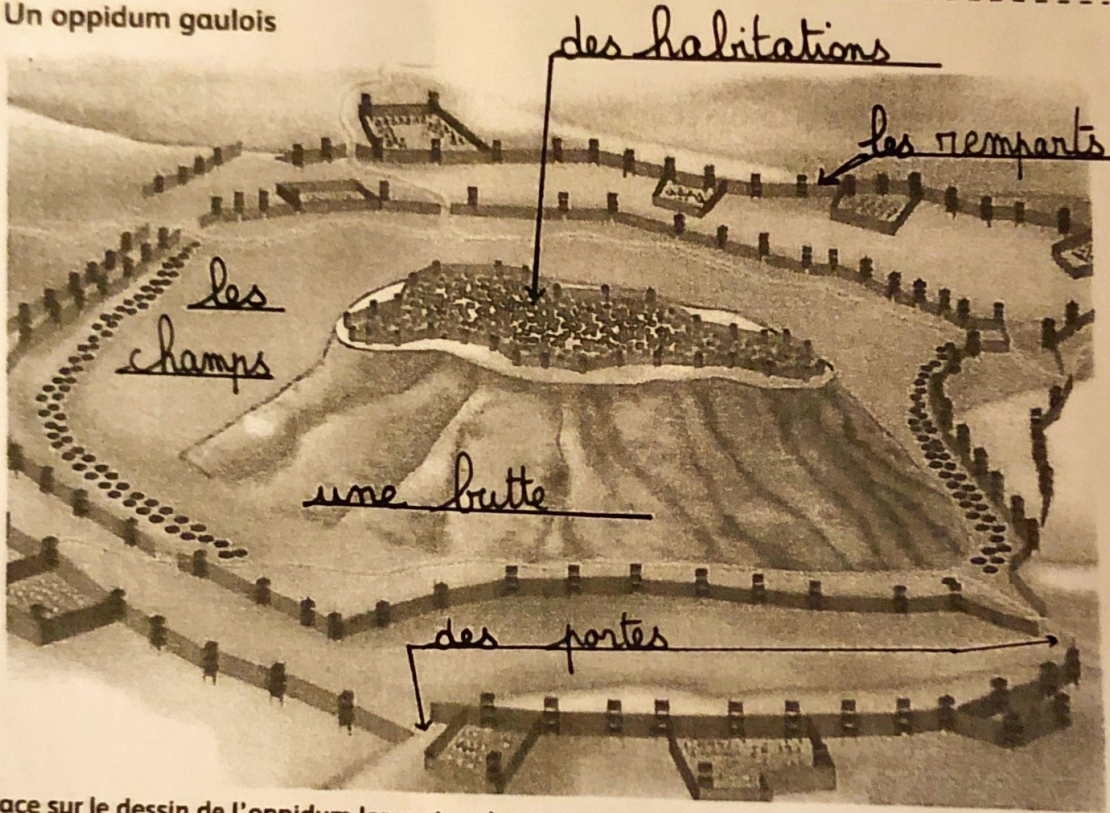 Un oppidum gaulois
des habitations
les remparts
les
champs
une butte
des portes
sur le dessin de l'oppidum